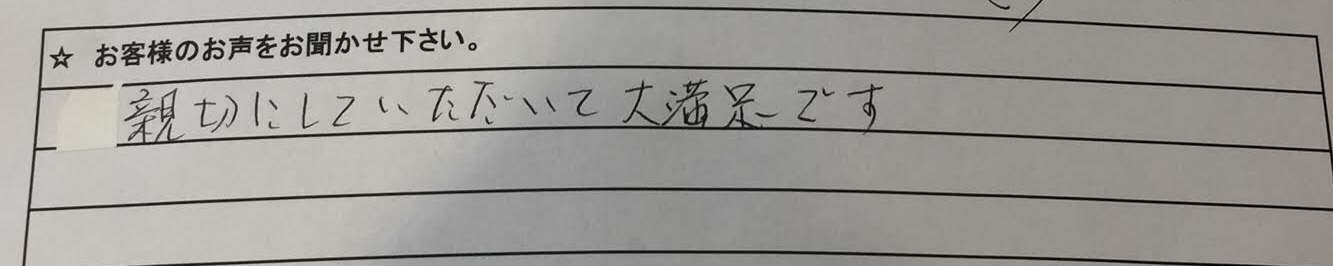 ☆ お客様のお声をお聞かせ下さい。
親切にしていただいて大満足です